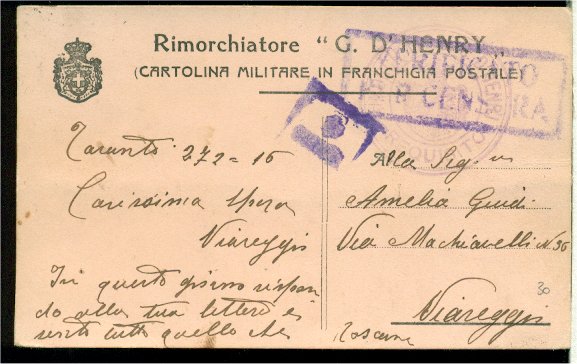 Rimorchiatore "G. D'HENRY"
(CARTOLINA MILITARE IN FRANCHIGIA POSTALE)
VERIFICATO
PER CENSURA
T
Taranto 27 2 = 16
Carissima Sposa
Viareggio
In questo giorno rispon
do alla tua lettera e
sento tutto quello che
Alla Sig.ra
Amelia Guidi
Via Machiavelli N. 36
Viareggio
Toscana
30